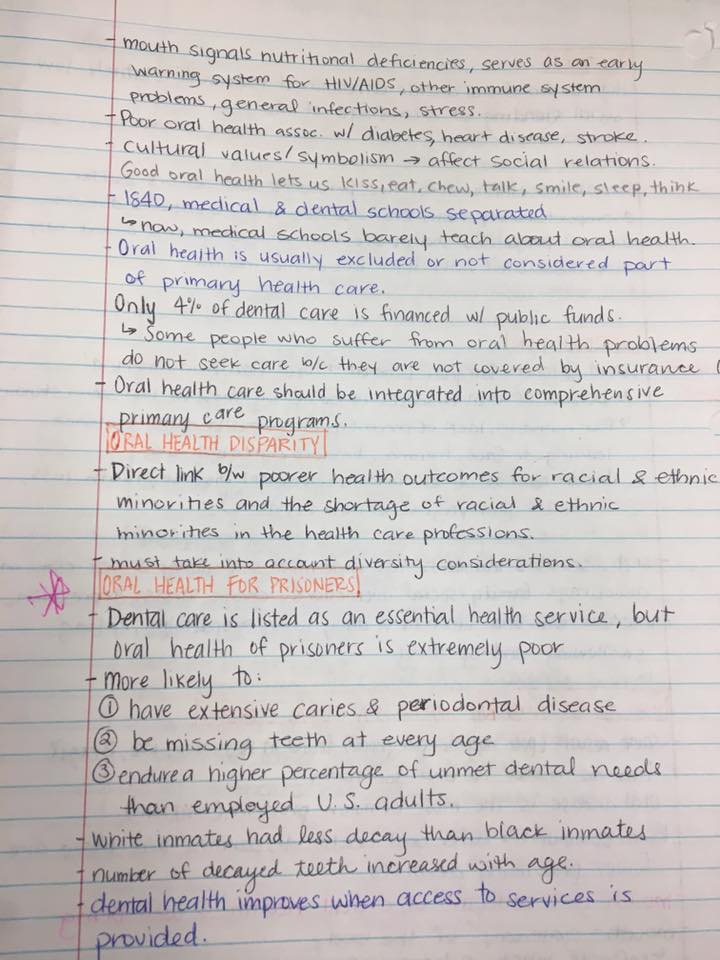 - mouth signals nutritional deficiencies, serves as an early
warning system for HIV/AIDS, other immune system
problems, general infections, stress.
- Poor oral health assoc. w/ diabetes, heart disease, stroke.
- cultural values/symbolism → affect social relations.
Good oral health lets us kiss, eat, chew, talk, smile, sleep, think
- 1840, medical & dental schools separated
↳ now, medical schools barely teach about oral health.
- Oral health is usually excluded or not considered part
of primary health care.
Only 4% of dental care is financed w/ public funds.
↳ Some people who suffer from oral health problems
do not seek care b/c they are not covered by insurance
- Oral health care should be integrated into comprehensive
primary care programs.
ORAL HEALTH DISPARITY
- Direct link b/w poorer health outcomes for racial & ethnic
minorities and the shortage of racial & ethnic
minorities in the health care professions.
- must take into account diversity considerations.
ORAL HEALTH FOR PRISONERS
- Dental care is listed as an essential health service, but
oral health of prisoners is extremely poor
- more likely to:
① have extensive caries & periodontal disease
② be missing teeth at every age
③ endure a higher percentage of unmet dental needs
than employed U.S. adults.
- White inmates had less decay than black inmates
- number of decayed teeth increased with age.
- dental health improves when access to services is
provided.